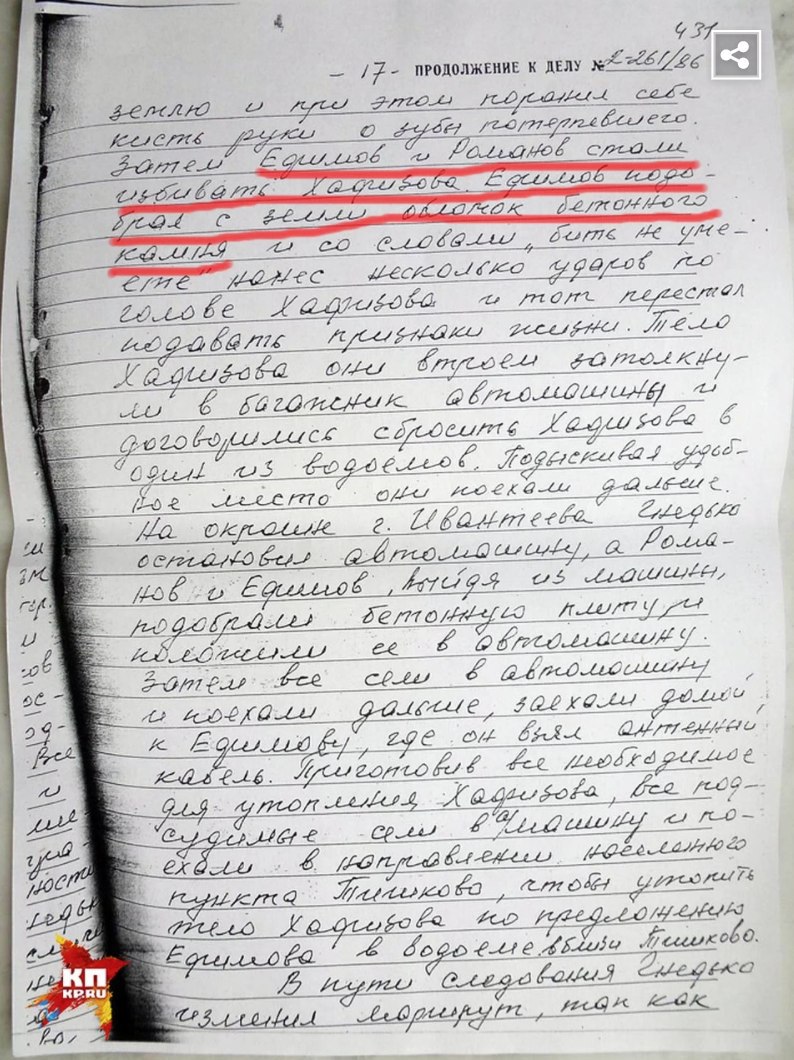 431
- 17 - ПРОДОЛЖЕНИЕ К ДЕЛУ № 2-261/86
землю и при этом поранил себе
кисть руки о зубы потерпевшего.
Затем Ефимов и Романов стали
избивать Хафизова. Ефимов подо-
брал с земли обломок бетонного
камня и со словами „бить не уме-
ете" нанес несколько ударов по
голове Хафизова и тот перестал
подавать признаки жизни. Тело
Хафизова они втроем затолкну-
ли в багажник автомашины и
договорились сбросить Хафизова в
один из водоемов. Подыскивая удоб-
ное место они поехали дальше.
На окраине г. Ивантеева Гнедько
остановил автомашину, а Рома-
нов и Ефимов, выйдя из машины,
подобрали бетонную плиту и
положили ее в автомашину.
Затем все сели в автомашину
и поехали дальше, заехали домой
к Ефимову, где он взял антенный
кабель. Приготовив все необходимое
для утопления Хафизова, все под-
судимые сели в а/машину и по-
ехали в направлении населенного
пункта Тишково, чтобы утопить
тело Хафизова по предложению
Ефимова в водоеме вблизи Тишково.
В пути следования Гнедько
изменил маршрут, так как
гор.
и
ов
ос-
Все
и
ности
КП
KP.RU